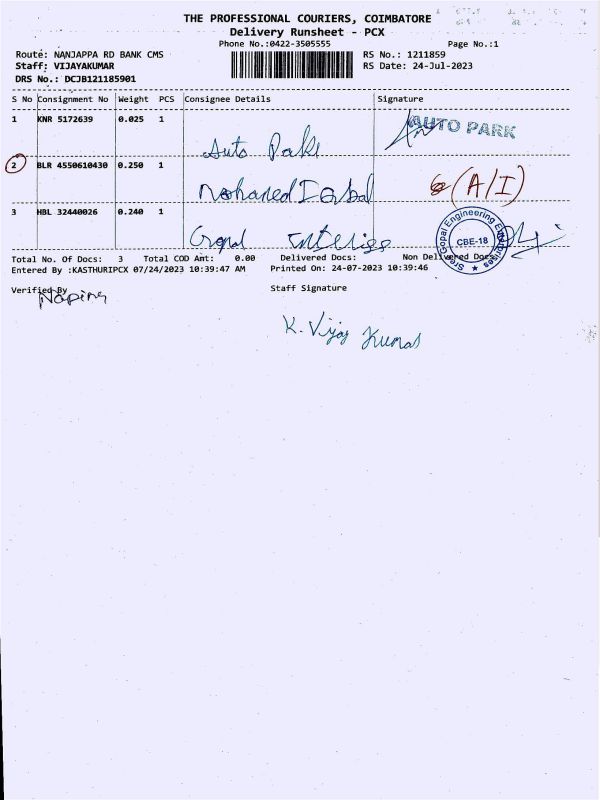 THE PROFESSIONAL COURIERS, COIMBATORE
Delivery Runsheet - PCX
Phone No.:0422-3505555 Page No.:1
Route: NANJAPPA RD BANK CMS RS No.: 1211859
Staff: VIJAYAKUMAR RS Date: 24-Jul-2023
DRS No.: DCJB121185901
S No Consignment No Weight PCS Consignee Details Signature
1 KNR 5172639 0.025 1
AUTO PARK
Auto Park
2 BLR 4550610430 0.250 1
Mohamed Iqbal (A/I)
3 HBL 32440026 0.240 1
Sree Gopal Engineering Enterprises
CBE-18
Total No. Of Docs: 3 Total COD Amt: 0.00 Delivered Docs: Non Delivered Docs:
Entered By :KASTHURIPCX 07/24/2023 10:39:47 AM Printed On: 24-07-2023 10:39:46
Verified By Staff Signature
K. Vijay Kumar